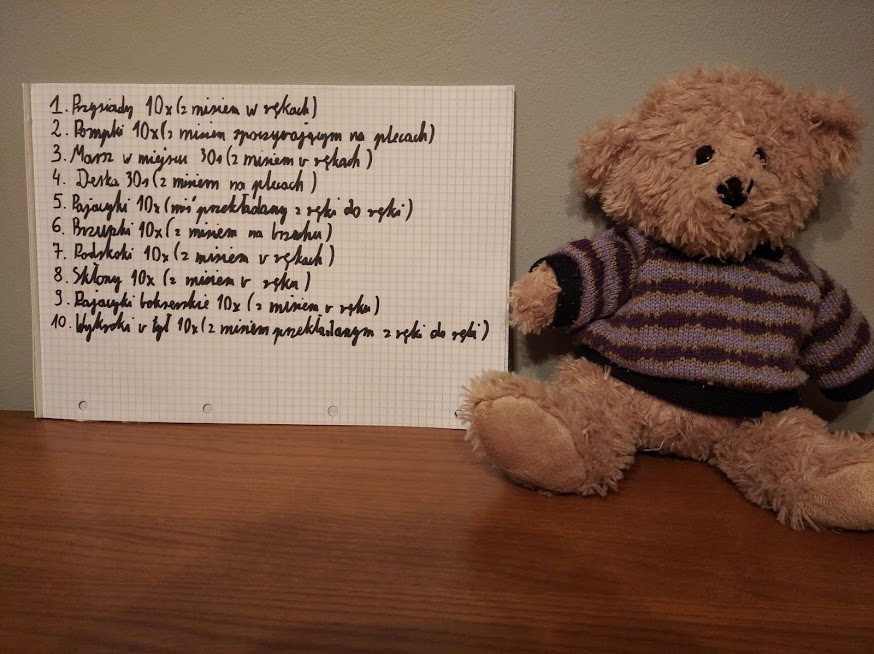 1. Przysiady 10x (z misiem w rękach)
2. Pompki 10x (z misiem spoczywającym na plecach)
3. Marsz w miejscu 30s (z misiem w rękach)
4. Deska 30s (z misiem na plecach)
5. Pajacyki 10x (miś przekładany z ręki do ręki)
6. Brzuszki 10x (z misiem na brzuchu)
7. Podskoki 10x (z misiem w rękach)
8. Skłony 10x (z misiem w ręku)
9. Pajacyki bokserskie 10x (z misiem w ręku)
10. Wykroki w tył 10x (z misiem przekładanym z ręki do ręki)